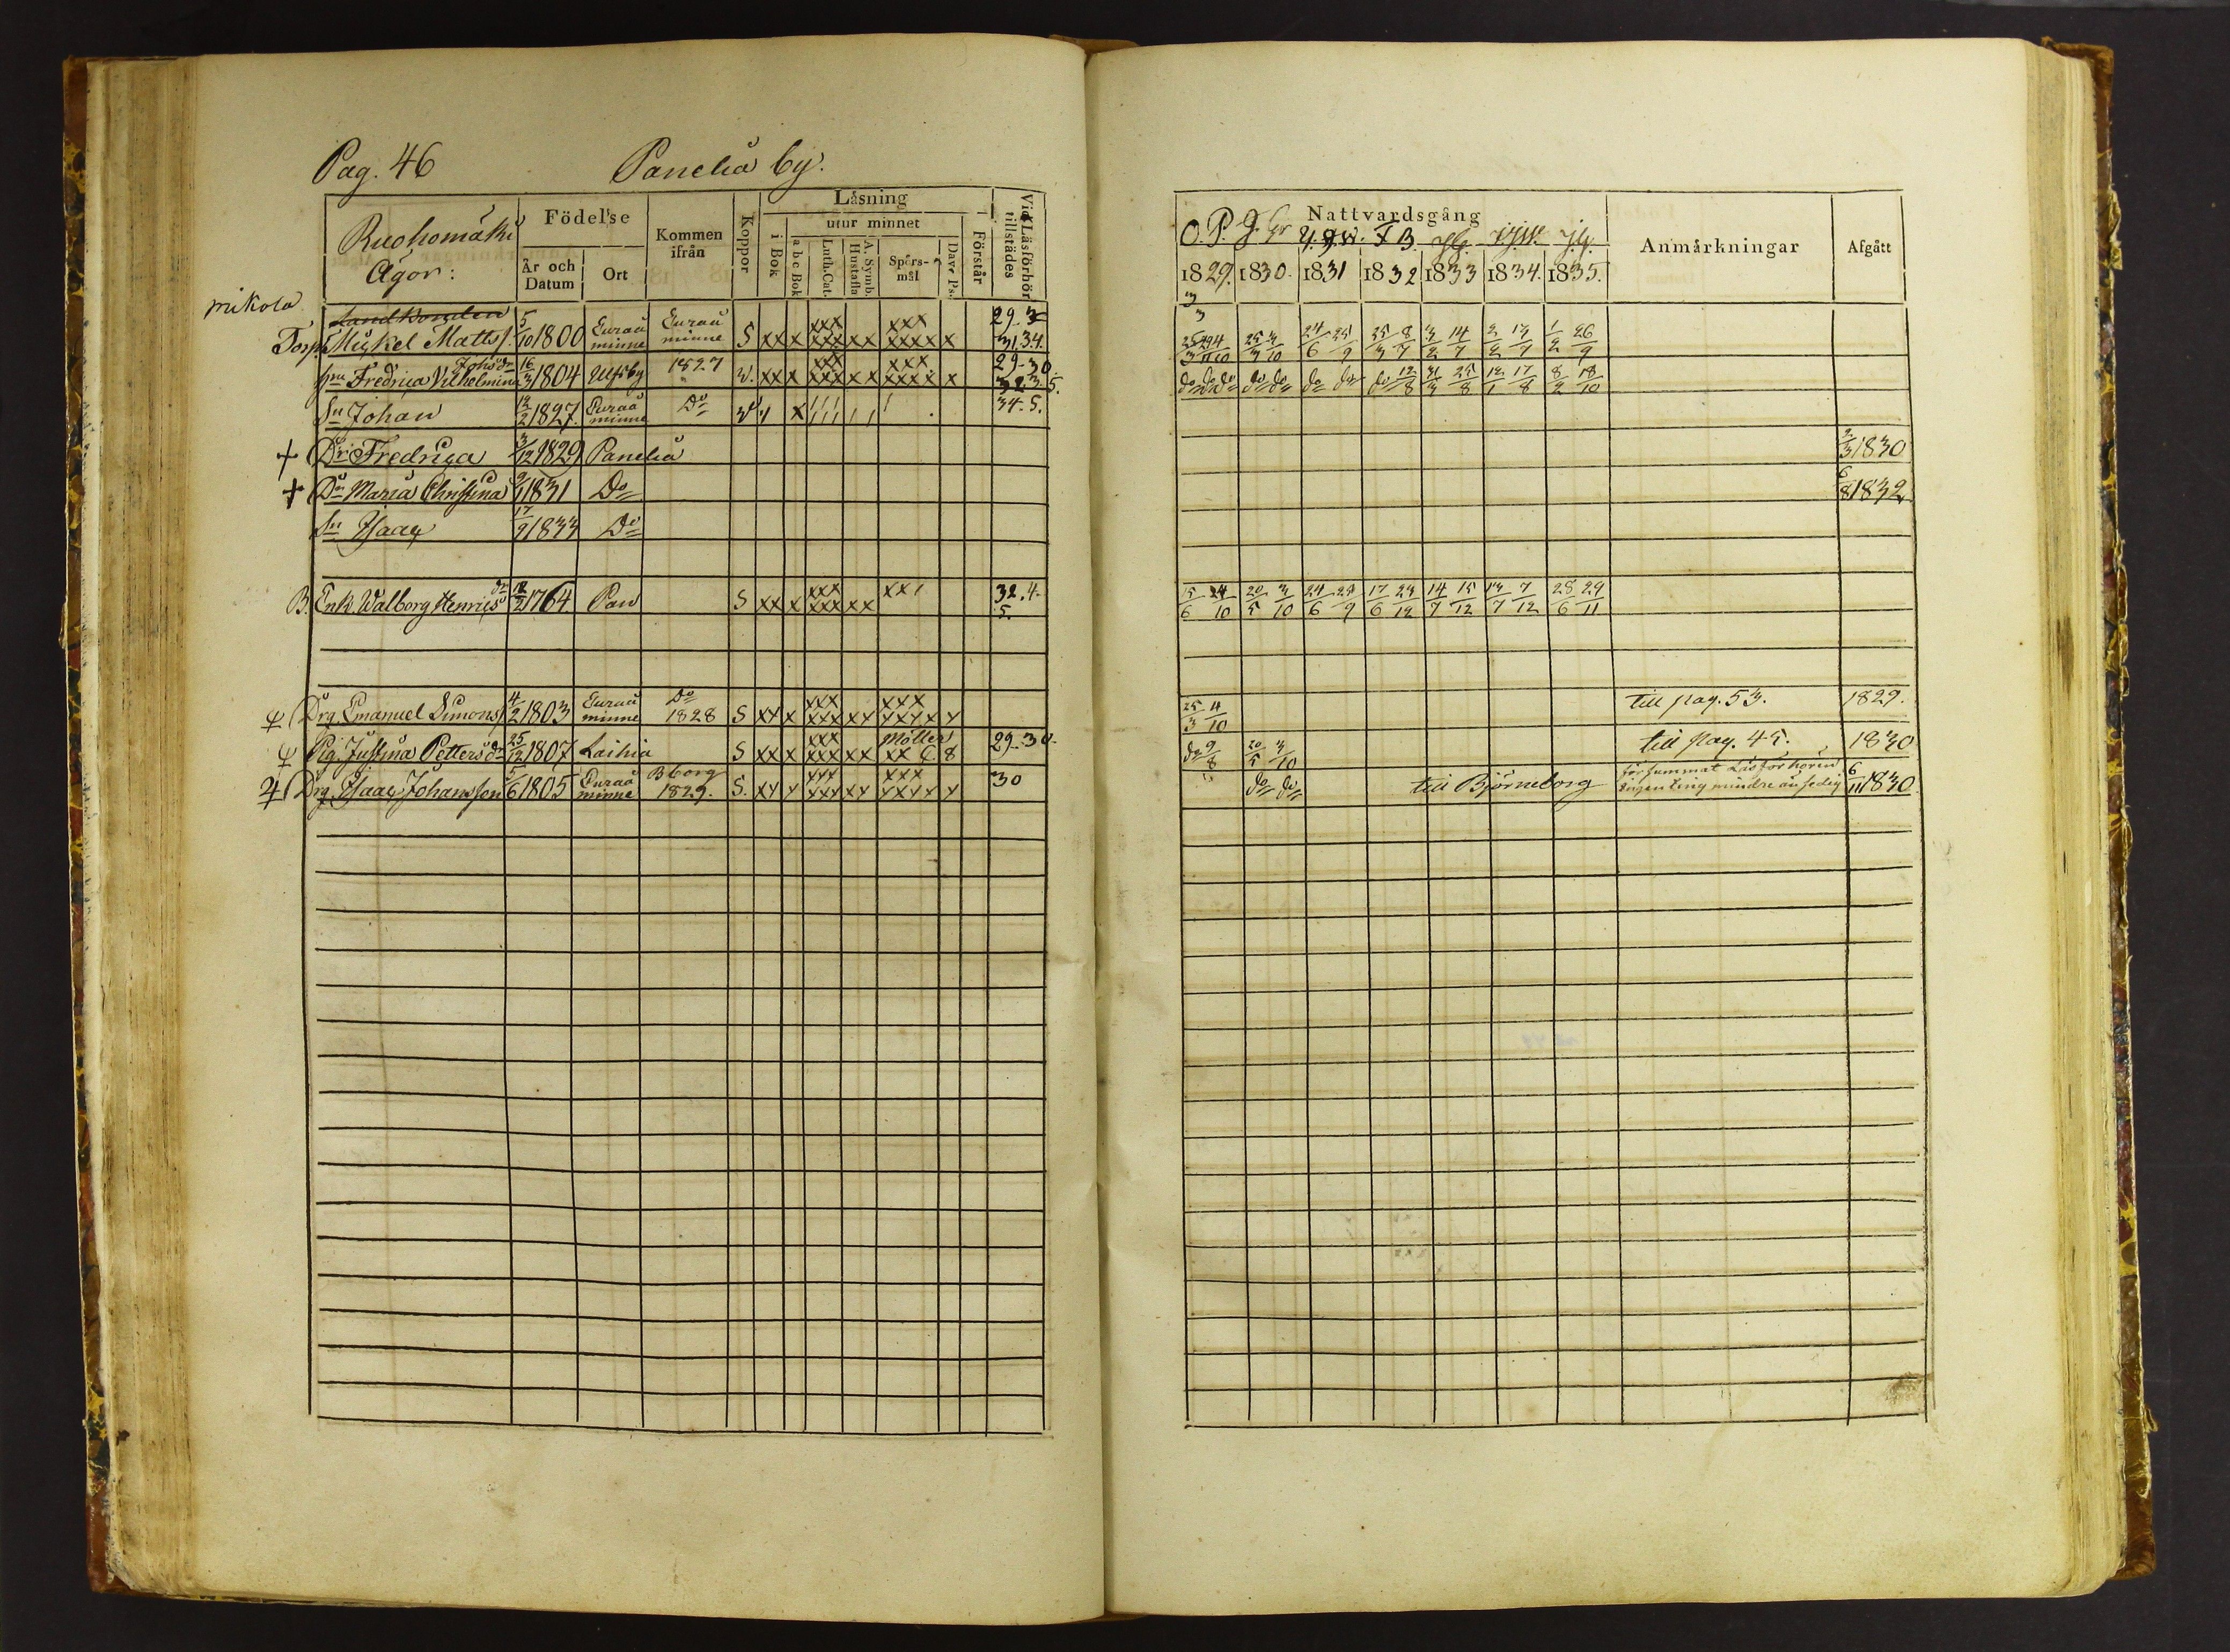 Pag. 46 Panelia by.
Ruohomäki
Ägor:
Födelse
År och Datum
Ort
Kommen ifrån
Koppor
Läsning
utur minnet
i Bok
a b c Bok
Luth. Cat.
A. Symb. Hustafla
Spörsmål
Dav. Ps.
Förstår
Vid Läsförhör tillstädes
O. P. Nattvardsgång
1829. 1830. 1831 1832 1833 1834. 1835.
Anmärkningar
Afgått
mikola
Torp. Mickel Matts s. 5/10 1800 Euraå minne Euraå minne S xx x xxx xxx xx xxx xxxx x 31.34.
25/3 4/10 25/3 3/10 24/6 25/9 25/3 8/7 3/2 14/7 2/2 13/7 1/2 26/9
hu Fredrica Vilhelmina Johsdr 16/3 1804 Ulfsby 1827 v. xx x xxx xxx xx xxx xxxx x 29-30 32.3.5.
do do do do do do do do 12/8 31/3 25/8 12/1 17/8 8/2 18/10
Sn Johan 12/2 1827. Euraå minne Do x 34.5.
+ Dr Fredrica 3/12 1829 Panelia 2/3 1830
+ Dr Maria Christina 9/1 1831 Do 6/8 1832
Sn Isaac 17/9 1833 Do
B. Enk. Walborg Henricsdr 12/2 1764 Pan S xx x xxx xxx xx xx 32.4.5.
15/6 24/10 20/5 3/10 24/6 25/9 17/6 23/12 14/7 15/12 13/7 7/12 28/6 29/11
Drg. Emanuel Simons s. 4/2 1803 Euraå minne Do 1828 S xx x xxx xxx xx xxx xxxx x
25/3 4/10 till pag. 53. 1829.
Pig. Justina Pettersdr 25/12 1807 Laihia S xx x xxx xxx xx xx C. 8 29-30
do 9/8 20/5 3/10 till pag. 45. 1830
Drg. Isaac Johansson 5/6 1805 Euraå minne Bborg 1829. S. xx x xxx xxx xx xxx xxxx x 30
do do till Björneborg försummat Läsförhören 6/11 1830